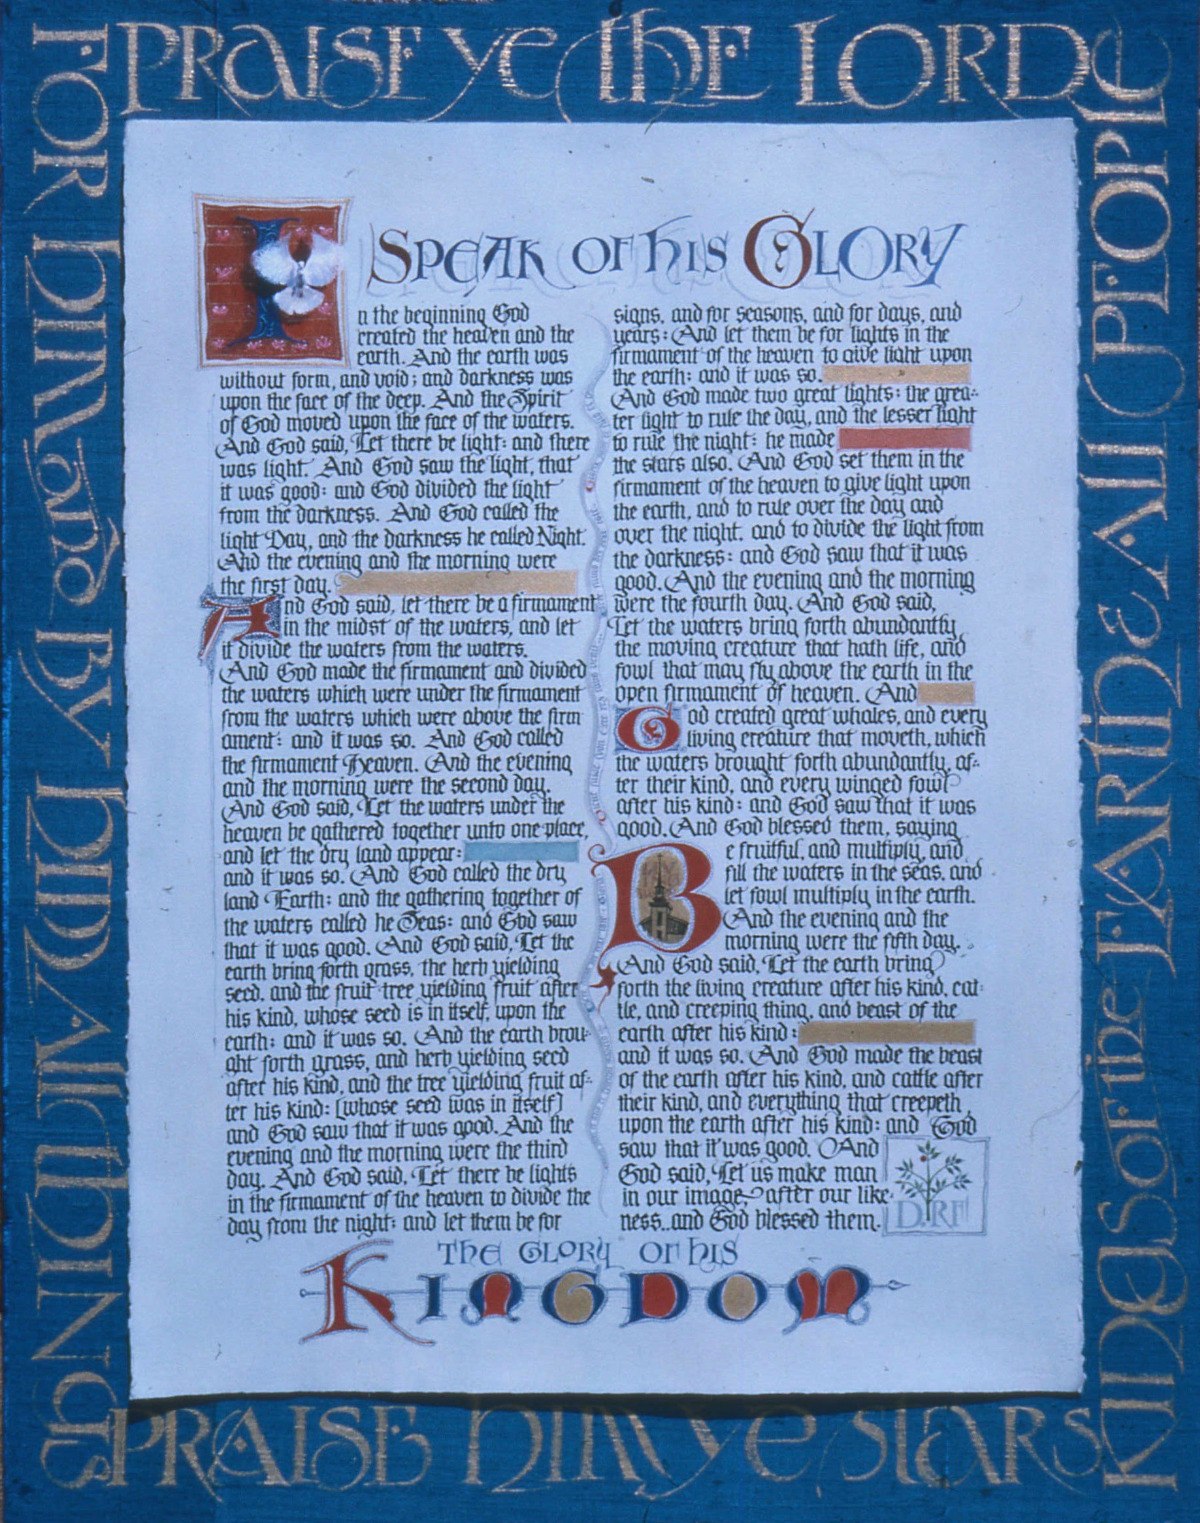 PRAISE ye the LORD
ALL PEOPLE
KINGS OF the EARTH &
PRAISE HIM ye STARS
FOR HIM and BY HIM ALL THINGS
I SPEAK OF HIS GLORY
In the beginning God
created the heaven and the
earth. And the earth was
without form, and void; and darkness was
upon the face of the deep. And the Spirit
of God moved upon the face of the waters.
And God said, Let there be light: and there
was light. And God saw the light, that
it was good: and God divided the light
from the darkness. And God called the
light Day, and the darkness he called Night.
And the evening and the morning were
the first day.
And God said, let there be a firmament
in the midst of the waters, and let
it divide the waters from the waters.
And God made the firmament and divided
the waters which were under the firmament
from the waters which were above the firm
ament: and it was so. And God called
the firmament Heaven. And the evening
and the morning were the second day.
And God said, Let the waters under the
heaven be gathered together unto one place,
and let the dry land appear:
and it was so. And God called the dry
land Earth: and the gathering together of
the waters called he Seas: and God saw
that it was good. And God said, Let the
earth bring forth grass, the herb yielding
seed, and the fruit tree yielding fruit after
his kind, whose seed is in itself, upon the
earth: and it was so. And the earth brou-
ght forth grass, and herb yielding seed
after his kind, and the tree yielding fruit af-
ter his kind: [whose seed was in itself]
and God saw that it was good. And the
evening and the morning were the third
day. And God said, Let there be lights
in the firmament of the heaven to divide the
day from the night: and let them be for
signs, and for seasons, and for days, and
years: And let them be for lights in the
firmament of the heaven to give light upon
the earth: and it was so.
And God made two great lights: the grea-
ter light to rule the day, and the lesser light
to rule the night: he made
the stars also. And God set them in the
firmament of the heaven to give light upon
the earth, and to rule over the day and
over the night, and to divide the light from
the darkness: and God saw that it was
good. And the evening and the morning
were the fourth day. And God said,
Let the waters bring forth abundantly
the moving creature that hath life, and
fowl that may fly above the earth in the
open firmament of heaven. And
God created great whales, and every
living creature that moveth, which
the waters brought forth abundantly, af-
ter their kind, and every winged fowl
after his kind: and God saw that it was
good. And God blessed them, saying
Be fruitful, and multiply, and
fill the waters in the seas, and
let fowl multiply in the earth.
And the evening and the
morning were the fifth day.
And God said, Let the earth bring
forth the living creature after his kind, cat-
tle, and creeping thing, and beast of the
earth after his kind:
and it was so. And God made the beast
of the earth after his kind, and cattle after
their kind, and everything that creepeth
upon the earth after his kind: and God
saw that it was good. And
God said, Let us make man
in our image, after our like-
ness...and God blessed them.
DRF
THE GLORY OF HIS
KINGDOM